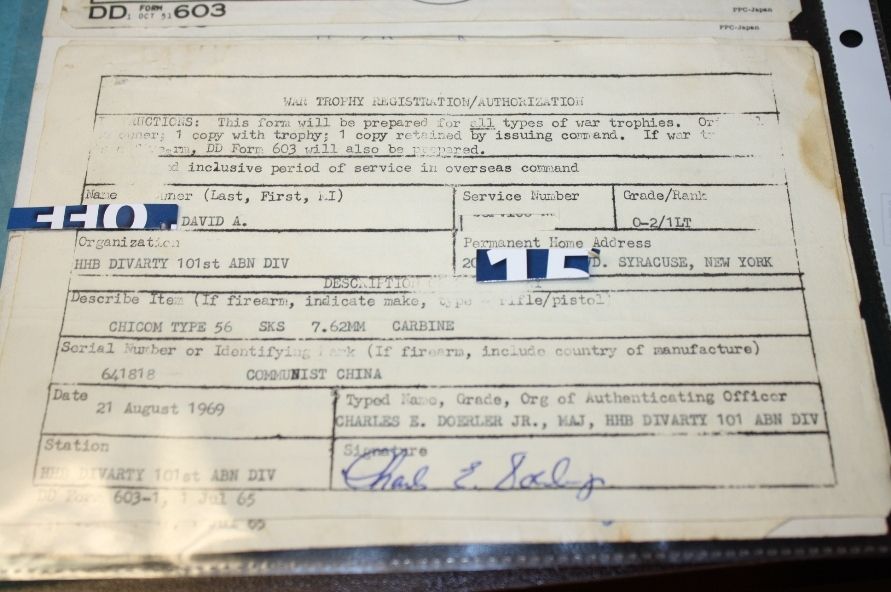 DD FORM 603
1 OCT 51
PPC-Japan
PPC-Japan
WAR TROPHY REGISTRATION/AUTHORIZATION
This form will be prepared for all types of war trophies.
1 copy with trophy; 1 copy retained by issuing command. If war
DD Form 603 will also be prepared.
inclusive period of service in overseas command
Name (Last, First, MI)
DAVID A.
Service Number
Grade/Rank
O-2/1LT
Organization
HHB DIVARTY 101st ABN DIV
Permanent Home Address
SYRACUSE, NEW YORK
DESCRIPTION
Describe Item (If firearm, indicate make, type - rifle/pistol)
CHICOM TYPE 56 SKS 7.62MM CARBINE
Serial Number or Identifying Mark (If firearm, include country of manufacture)
641818 COMMUNIST CHINA
Date
21 August 1969
Typed Name, Grade, Org of Authenticating Officer
CHARLES E. DOERLER JR., MAJ, HHB DIVARTY 101 ABN DIV
Station
HHB DIVARTY 101st ABN DIV
Signature
Charles E. Doerler Jr
DD Form 603-1, 1 Jul 65
Jul 65